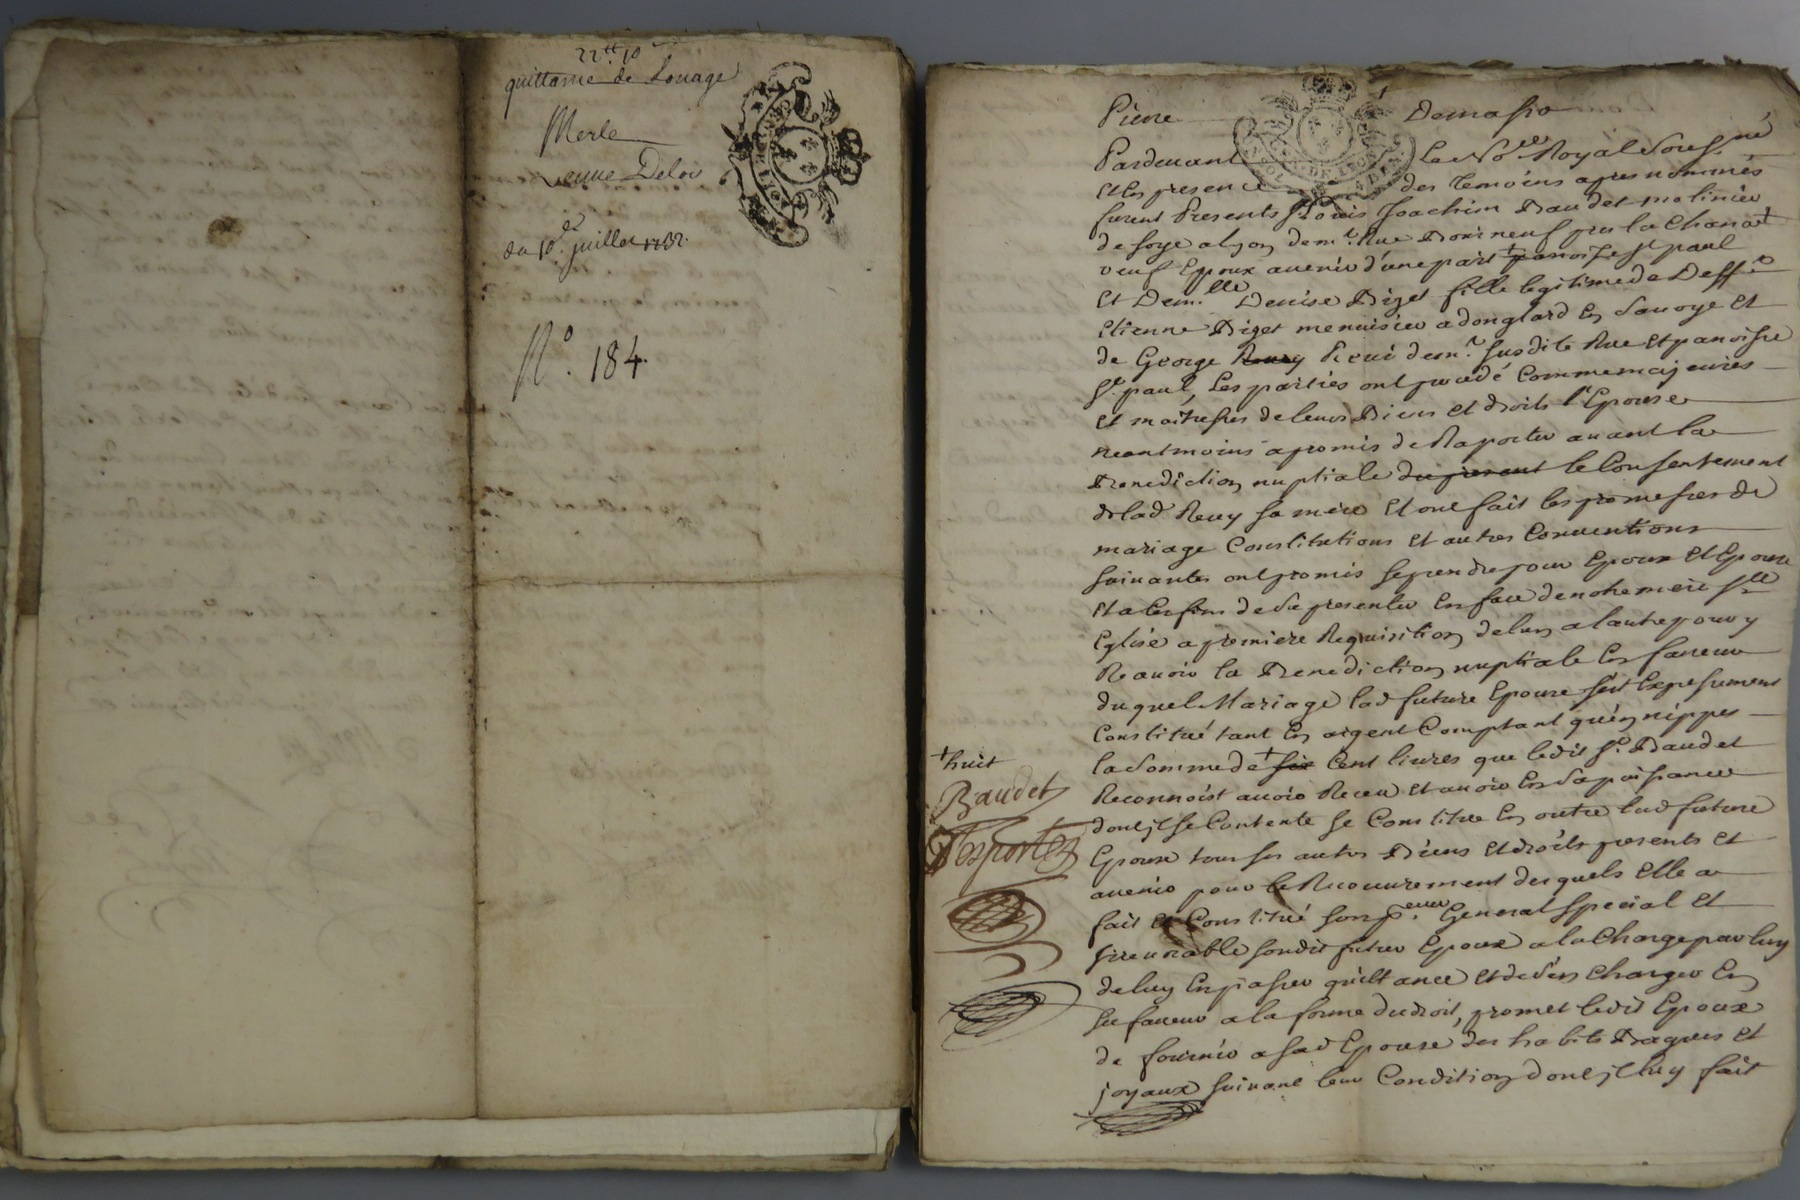 22tt 10
quittance de Louage
Merle
veuve Deloi
du 10e juillet
N° 184.
Pierre Demasso
Pardevant Le Nore Royal Soussné
et en presence des temoins apres nommés
furent Presents Sr Louis Joachim Baudet molinier
de soye a Lyon demt Rue Bourneuf pres la Chana +
veuf Epoux avenir d'une part + paroisse St paul
Et Demlle Denise Biget fille legitime de Defft
Etienne Biget menuisier a donglard En Savoye et
de George Revy demt susdite Rue et paroisse
St paul, Les parties ont procedé Comme majeures
et maitresses de leurs Biens et droits l'Epouse
neantmoins a promis de Raporter avant la
Benediction nuptiale du present le Consentement
de lad Revy sa mere Et ont fait les promesses de
mariage Constitutions et autres Conventions
suivantes ont promis se prendre pour Epoux et Epouse
et a Ces fins de se presenter En face de notre mere Ste
Eglise a premiere Requisition de lun a lautre pour y
Recevoir la Benediction nuptiale En faveur
du quel Mariage lad future Epouse s'est Expressement
Constitué tant En argent Comptant qu'en nippes
la Somme de + six Cent livres que ledit Sr Baudet
Reconnoist avoir Receu et avoir En sa puissance
dont il se Contente se Constitue En outre lad future
Epouse tous ses autres Biens et droits presents et
avenir pour le Recouvrement desquels Elle a
fait et Constitué son preur General special et
irrevocable sondit futur Epoux a la Charge par luy
de luy En passer quittance et de s'en Charger En
sa faveur a la forme du droit, promet ledit Epoux
de fournir a sad Epouse des habits Bagues et
joyaux suivant leur Condition dont il luy fait
+ huit
Baudet
Desportes